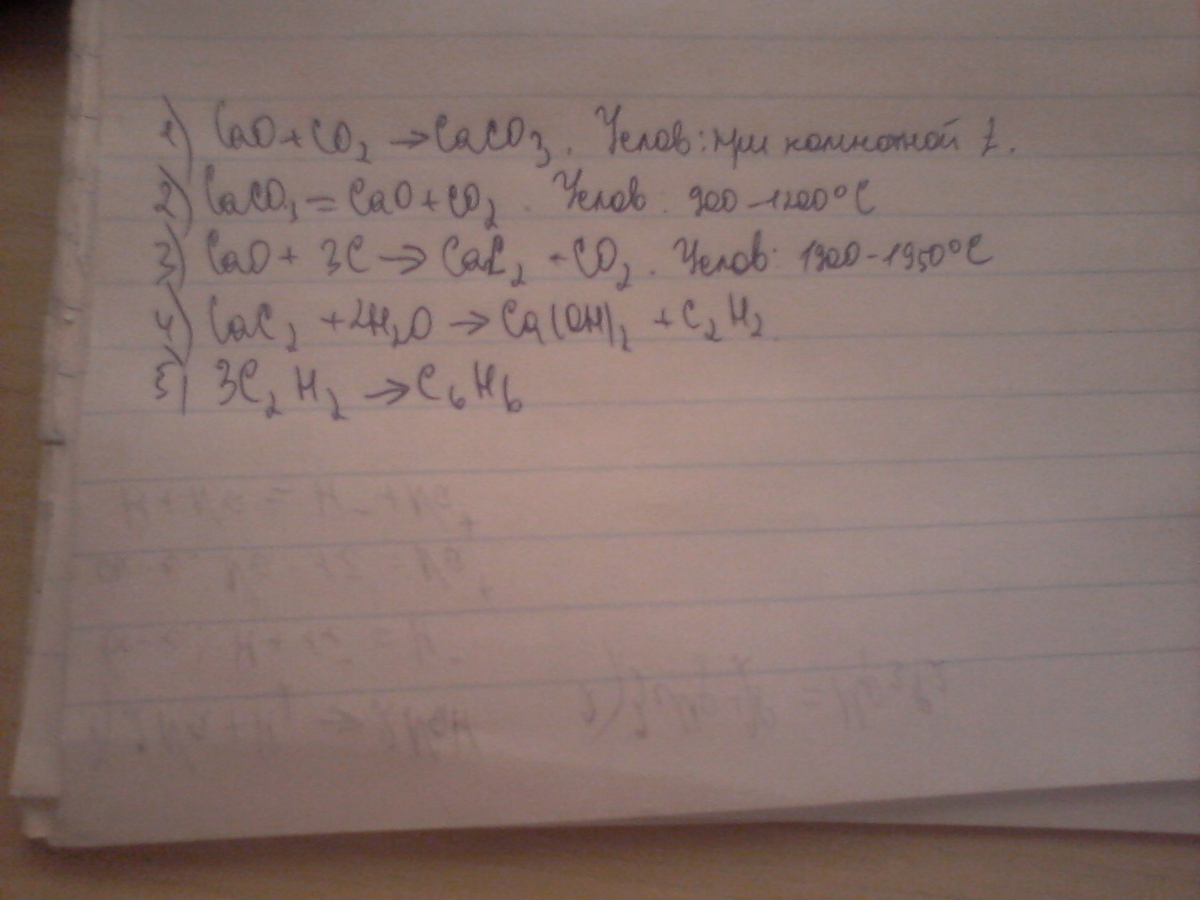 1) CaO+CO₂ →CaCO₃. Услов: при комнатной t.
2) CaCO₃ = CaO+CO₂. Услов. 900-1200°C
3) CaO + 3C → CaC₂ + CO₂. Услов: 1900-1950°C
4) CaC₂ +2H₂O → Ca(OH)₂ + C₂H₂.
5) 3C₂H₂ → C₆H₆